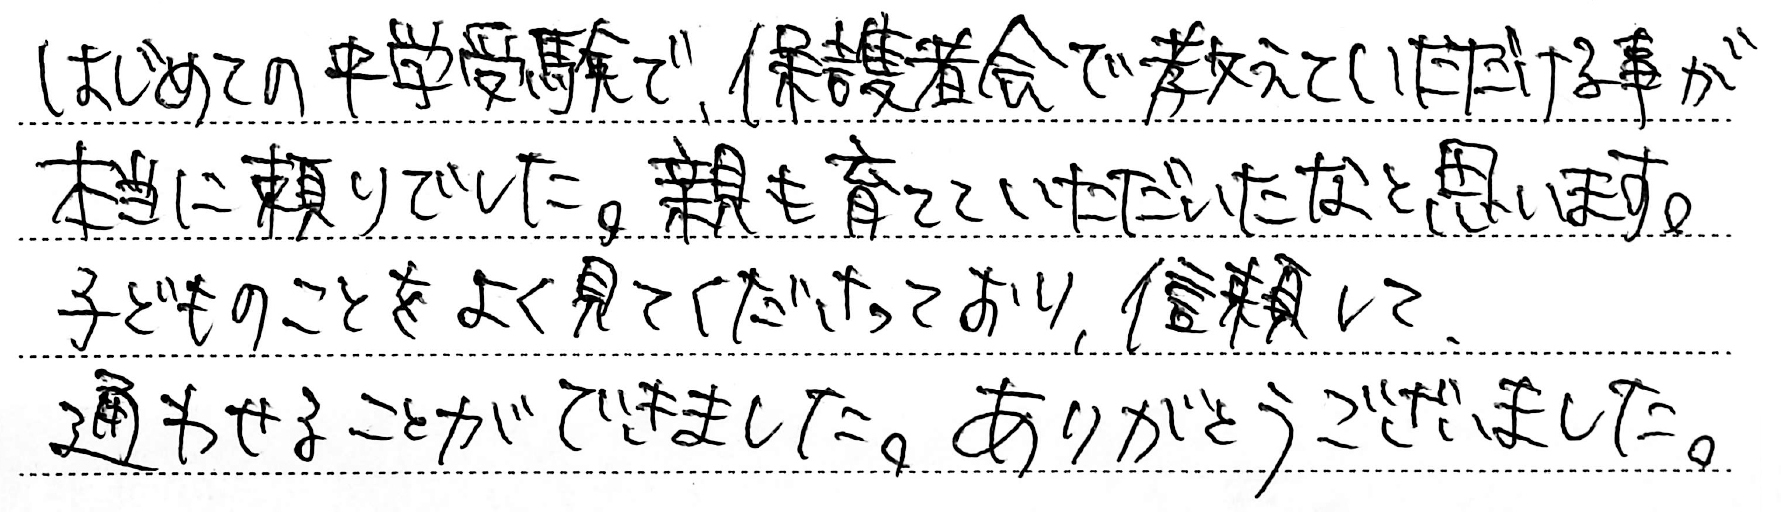 はじめての中学受験で、保護者会で教えていただける事が
本当に頼りでした。親も育てていただいたなと思います。
子どものことをよく見てくださっており、信頼して、
通わせることができました。ありがとうございました。